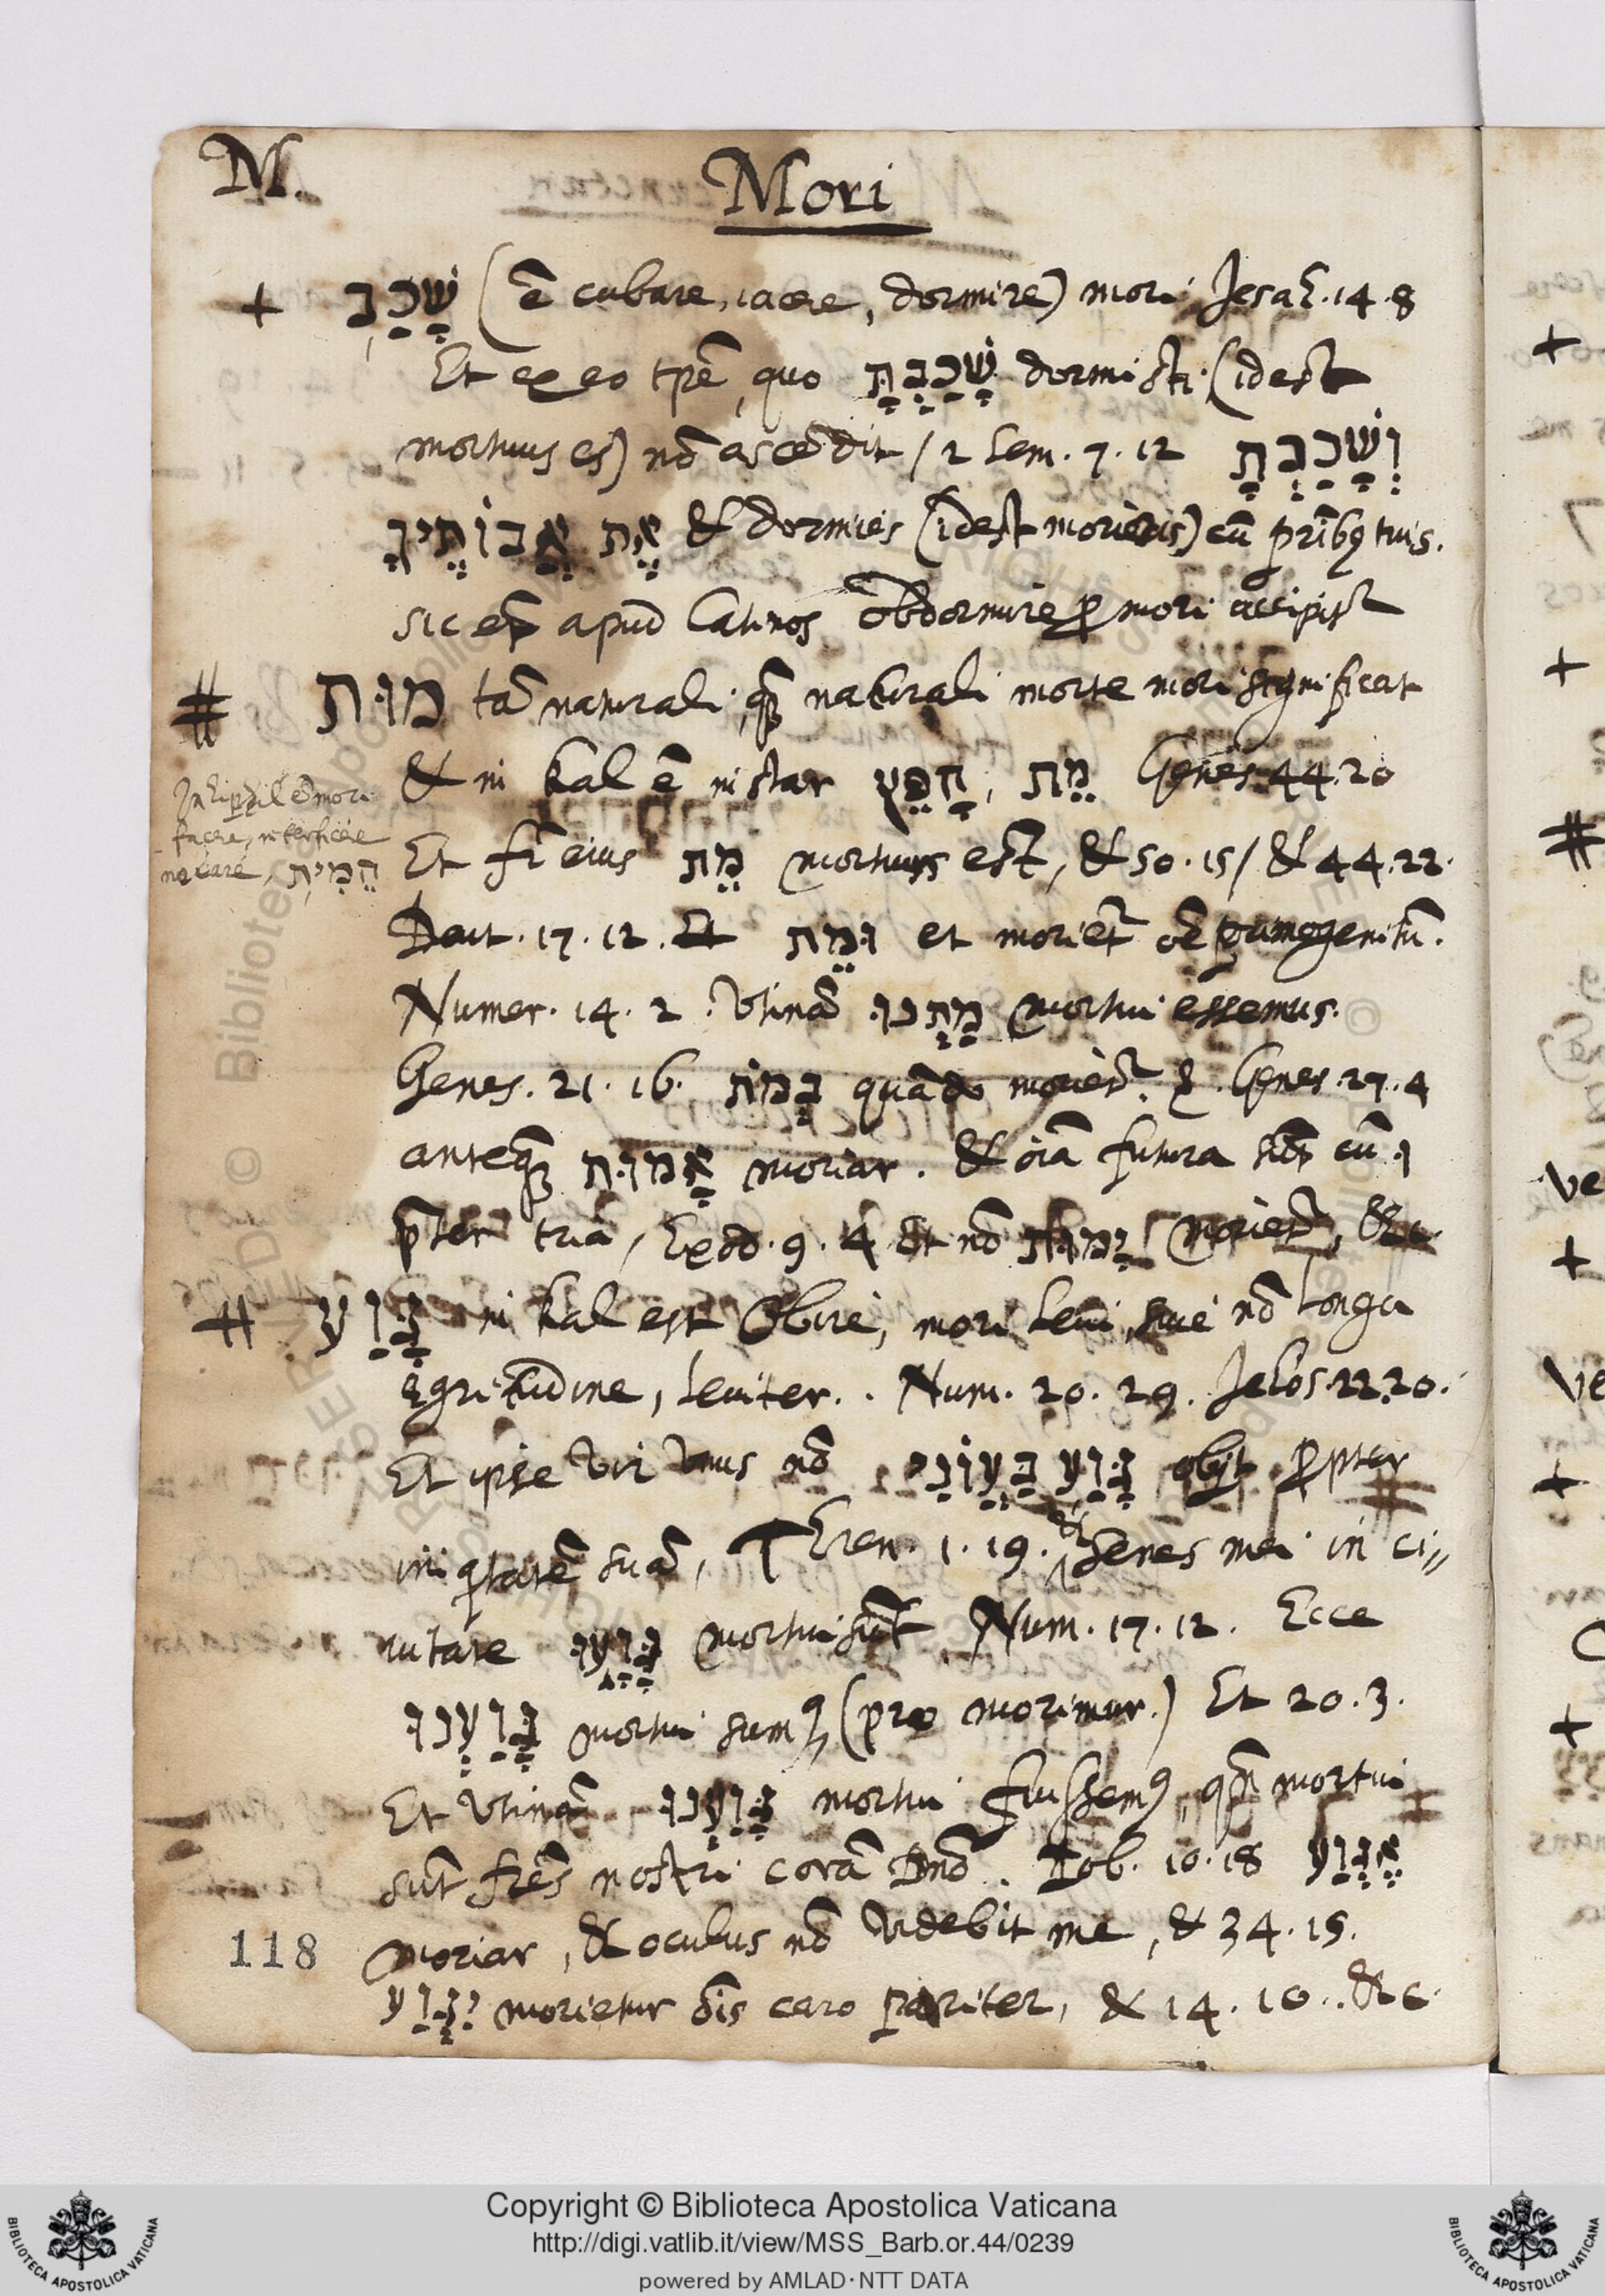 M.
Mori
+ שָׁכַב (ē cubare, iacere, dormire) mori Jesaī. 14. 8
Et ex eo tpē, quo שָׁכַבְתָּ dormisti (idest
mortuus es) nō ascēdit / 2 Sem. 7. 12 וְשָׁכַבְתָּ
אֶת אֲבוֹתֶיךָ & dormies (idest morieris) cū prībꝫ tuis.
sic et apud Latinos obdormire ꝑ mori accipit
# מוּת tā naturali, quā naturali morte mori significat
& in kal ē instar חָפֵץ, מֵת Genes. 44. 20
In hiphil ē mori
facere, interficere
necare, הֵמִית
Et fr̄ eius מֵת mortuus est, & 50. 15 / & 44. 22.
Deut. 17. 12. Et וּמֵת et moriet oē primogenitū.
Numer. 14. 2. Utinā מַתְנוּ mortui essemus.
Genes. 21. 16. בְּמוֹת quādo moriet. Genes. 27. 4
anteq̄ אָמוּת moriar. & oīa futura sūt cū וּ
p̄ter tria, Exod. 9. 4 Et nō יָמוּת moriet, &c.
# גָּוַע in kal est Obire, mori leui, siue nō longa
ęgritudine, leuiter.. Num. 20. 29. Jehos. 22. 20.
Et ipse vir unus nō גָּוַע בַּעֲוֹנִי obijt ꝓpter
iniqtatē suā, Tren. 1. 19. et senes mei in ci„
uitate גָּוָעוּ mortui sūt Num. 17. 12. Ecce
גָּוַעְנוּ mortui sumꝰ (pro morimur.) Et 20. 3.
Et Utinā גָּוַעְנוּ mortui fuissemꝰ, qn̄ mortui
sūt frēs nostri corā Dn̄o. Iob. 10. 18 אֶגְוַע
moriar, & oculus nō videbit me, & 34. 15.
יִגְוַע morietur oīs caro pariter, & 14. 10.. &c.
118
Copyright © Biblioteca Apostolica Vaticana
http://digi.vatlib.it/view/MSS_Barb.or.44/0239
powered by AMLAD·NTT DATA
BIBLIOTECA APOSTOLICA VATICANA
BIBLIOTECA APOSTOLICA VATICANA